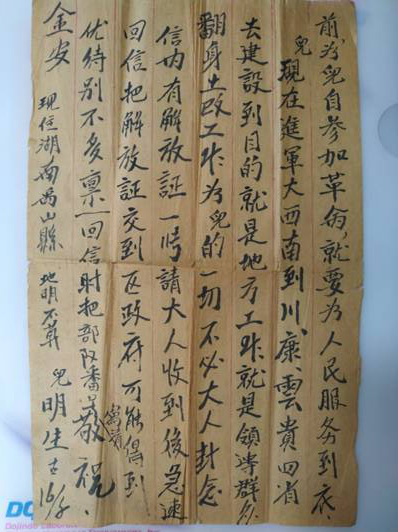 前為兒自参加革命就要為人民服务到底
兒現在進軍大西南到川、康、雲貴四省
去建設到目的就是地方工作就是領導群众
翻身土政工作為兒的一切不必大人封念
信内有解放証一帋請大人收到後急速
回信把解放証交到区政府可能得到
优待别不多禀 回信时把部队番号寫着敬祝、
金安 現住湖南 山縣 地明不算 兒明生
Dojindo Laborato